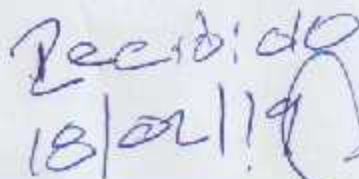 Recibido
18/02/19